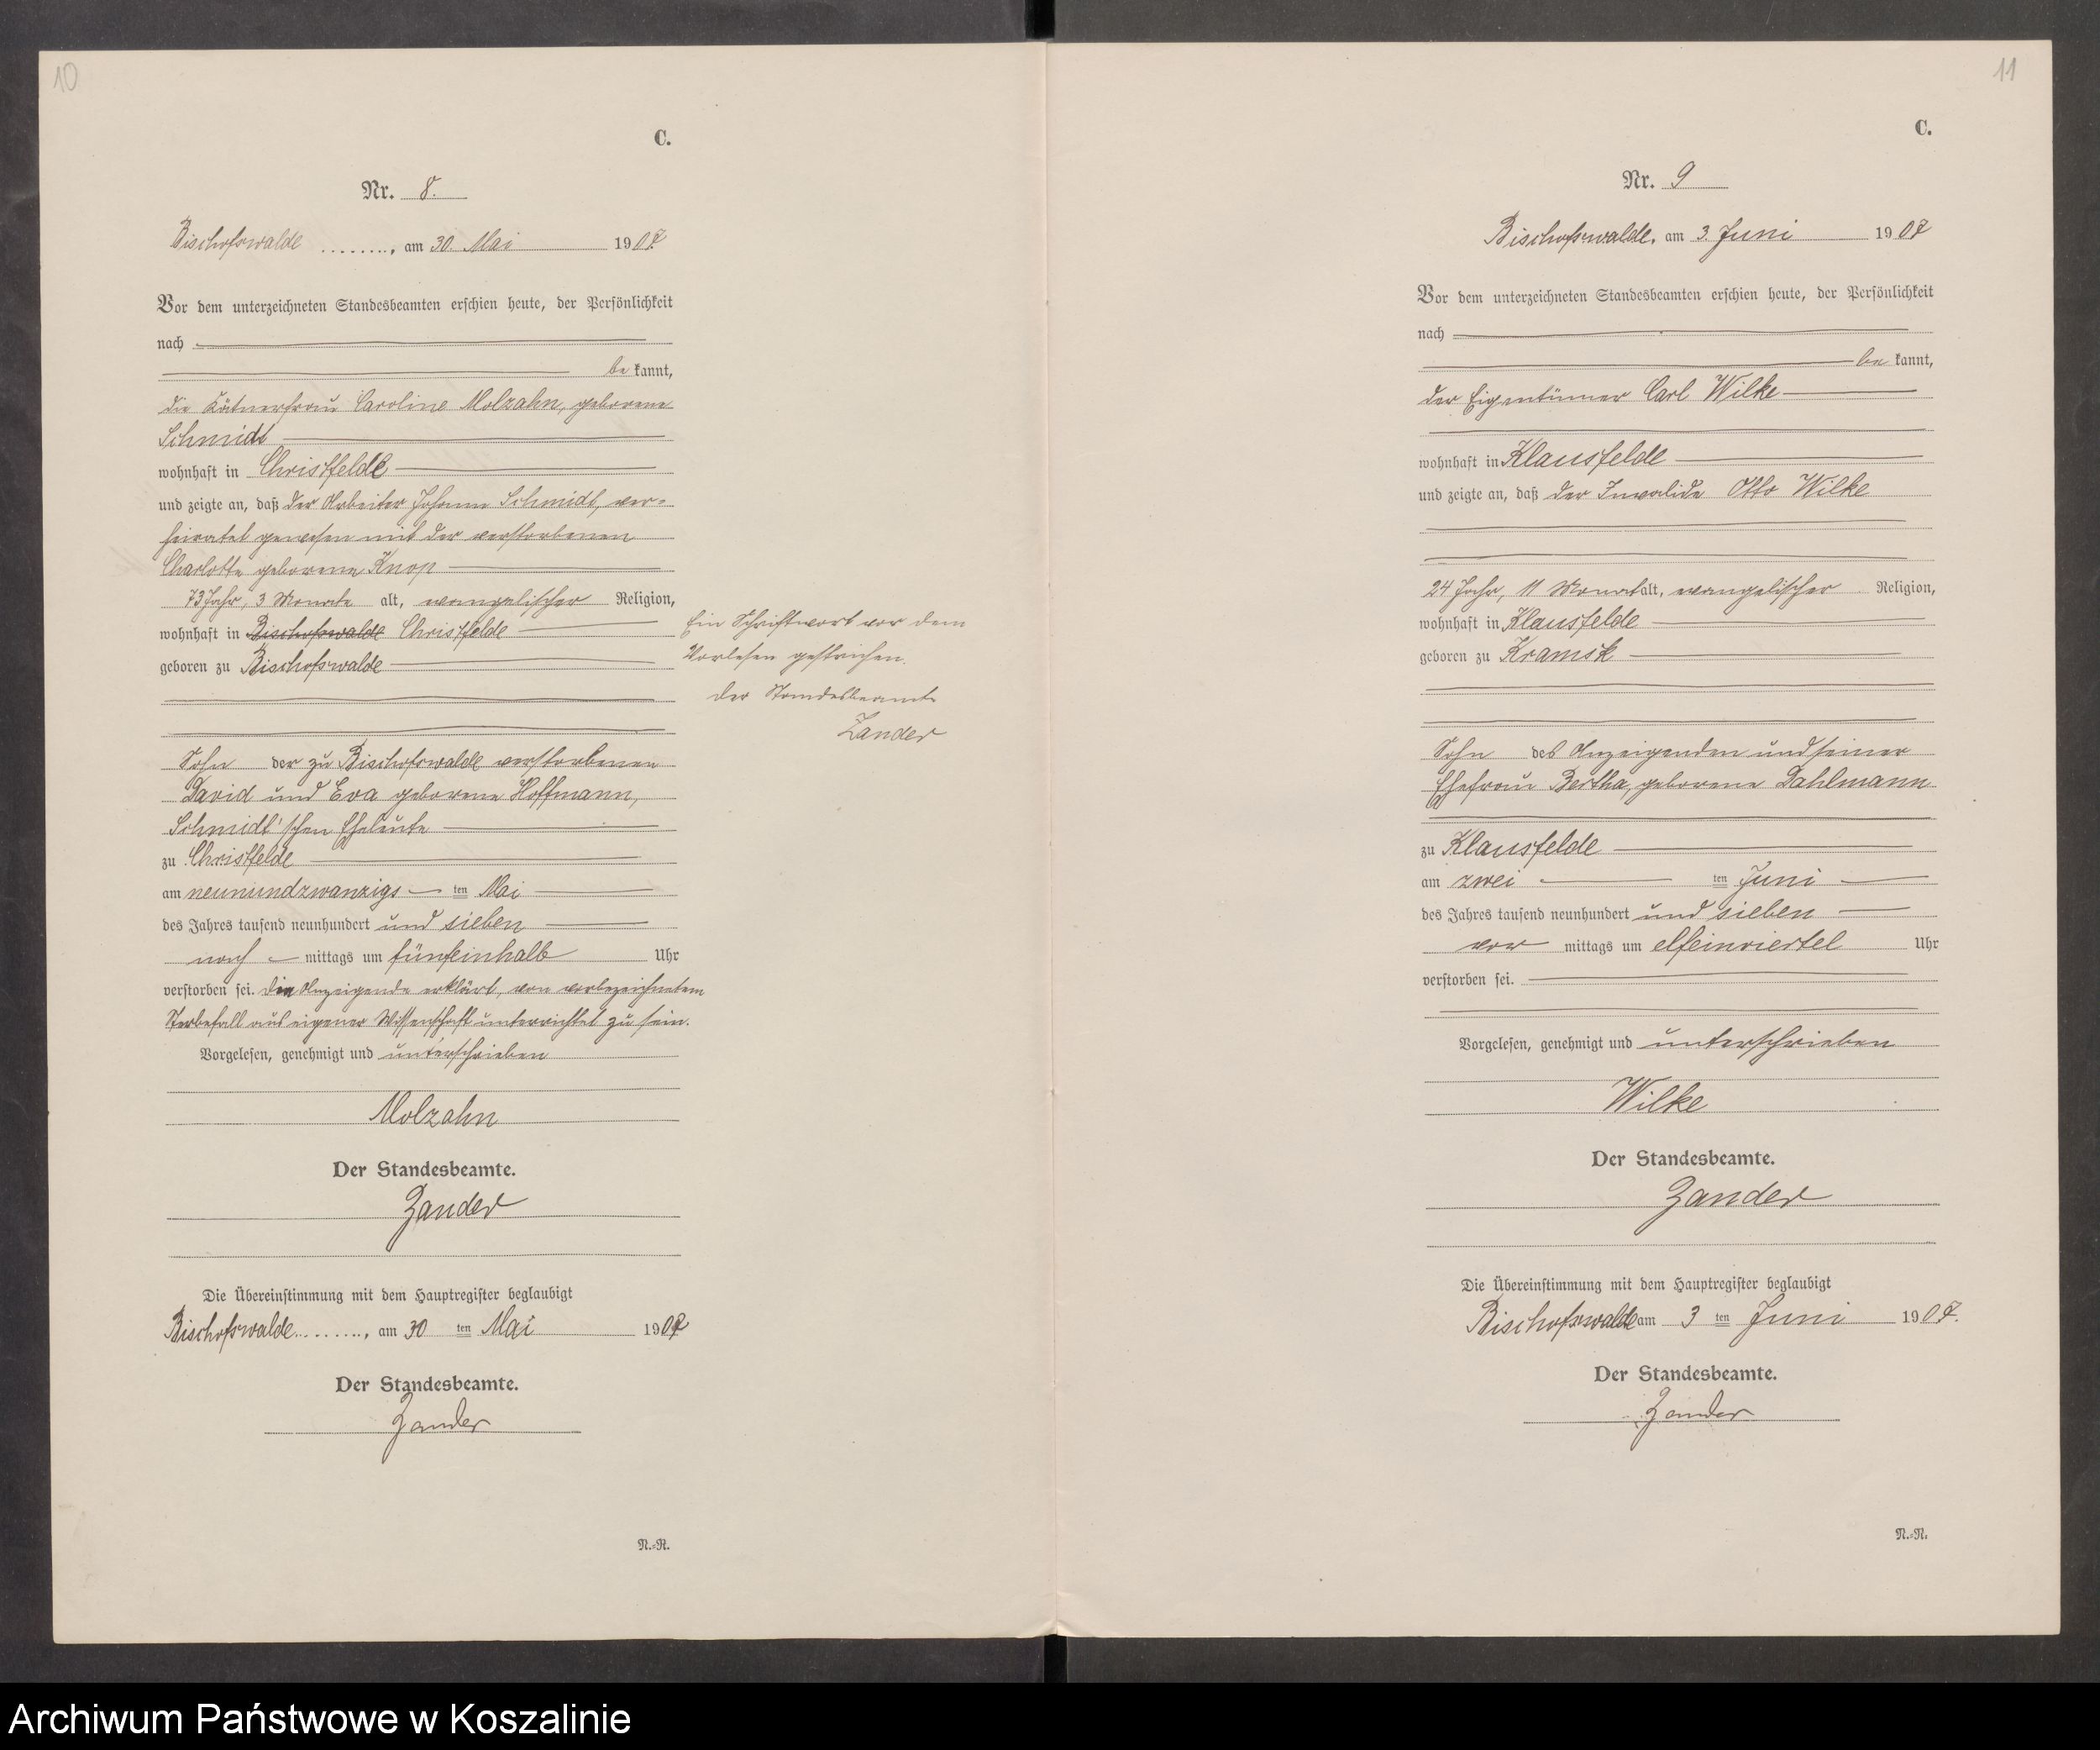 10
C.
Nr. 8.
Bischofswalde ........, am 30. Mai 1907.
Vor dem unterzeichneten Standesbeamten erschien heute, der Persönlichkeit
nach
be kannt,
die Kätnerfrau Caroline Molzahn, geborene
Schmidt
wohnhaft in Christfelde
und zeigte an, daß der Arbeiter Johann Schmidt, ver-
heiratet gewesen mit der verstorbenen
Charlotte geborene Knop
73 Jahr, 3 Monate alt, evangelischer Religion,
wohnhaft in Bischofswalde Christfelde
geboren zu Bischofswalde
Sohn der zu Bischofswalde verstorbenen
David und Eva geborene Hoffmann,
Schmidt'schen Eheleute
zu Christfelde
am neunundzwanzigs ten Mai
des Jahres tausend neunhundert und sieben
nach mittags um fünfeinhalb Uhr
verstorben sei. Die Anzeigende erklärt, von vorbezeichnetem
Sterbefall aus eigener Wissenschaft unterrichtet zu sein.
Vorgelesen, genehmigt und unterschrieben
Molzahn
Der Standesbeamte.
Zander
Die Übereinstimmung mit dem Hauptregister beglaubigt
Bischofswalde........, am 30 ten Mai 1907
Der Standesbeamte.
Zander
N.-R.
Ein Schriftwort vor dem
Vorlesen gestrichen.
Der Standesbeamte
Zander
11
C.
Nr. 9
Bischofswalde, am 3. Juni 1907
Vor dem unterzeichneten Standesbeamten erschien heute, der Persönlichkeit
nach
be kannt,
der Eigentümer Carl Wilke
wohnhaft in Klausfelde
und zeigte an, daß der Invalide Otto Wilke
24 Jahr, 11 Monat alt, evangelischer Religion,
wohnhaft in Klausfelde
geboren zu Kramsk
Sohn des Anzeigenden und seiner
Ehefrau Bertha, geborene Dahlmann
zu Klausfelde
am zwei ten Juni
des Jahres tausend neunhundert und sieben
vor mittags um elfeinviertel Uhr
verstorben sei.
Vorgelesen, genehmigt und unterschrieben
Wilke
Der Standesbeamte.
Zander
Die Übereinstimmung mit dem Hauptregister beglaubigt
Bischofswalde am 3 ten Juni 1907.
Der Standesbeamte.
Zander
N.-R.
Archiwum Państwowe w Koszalinie